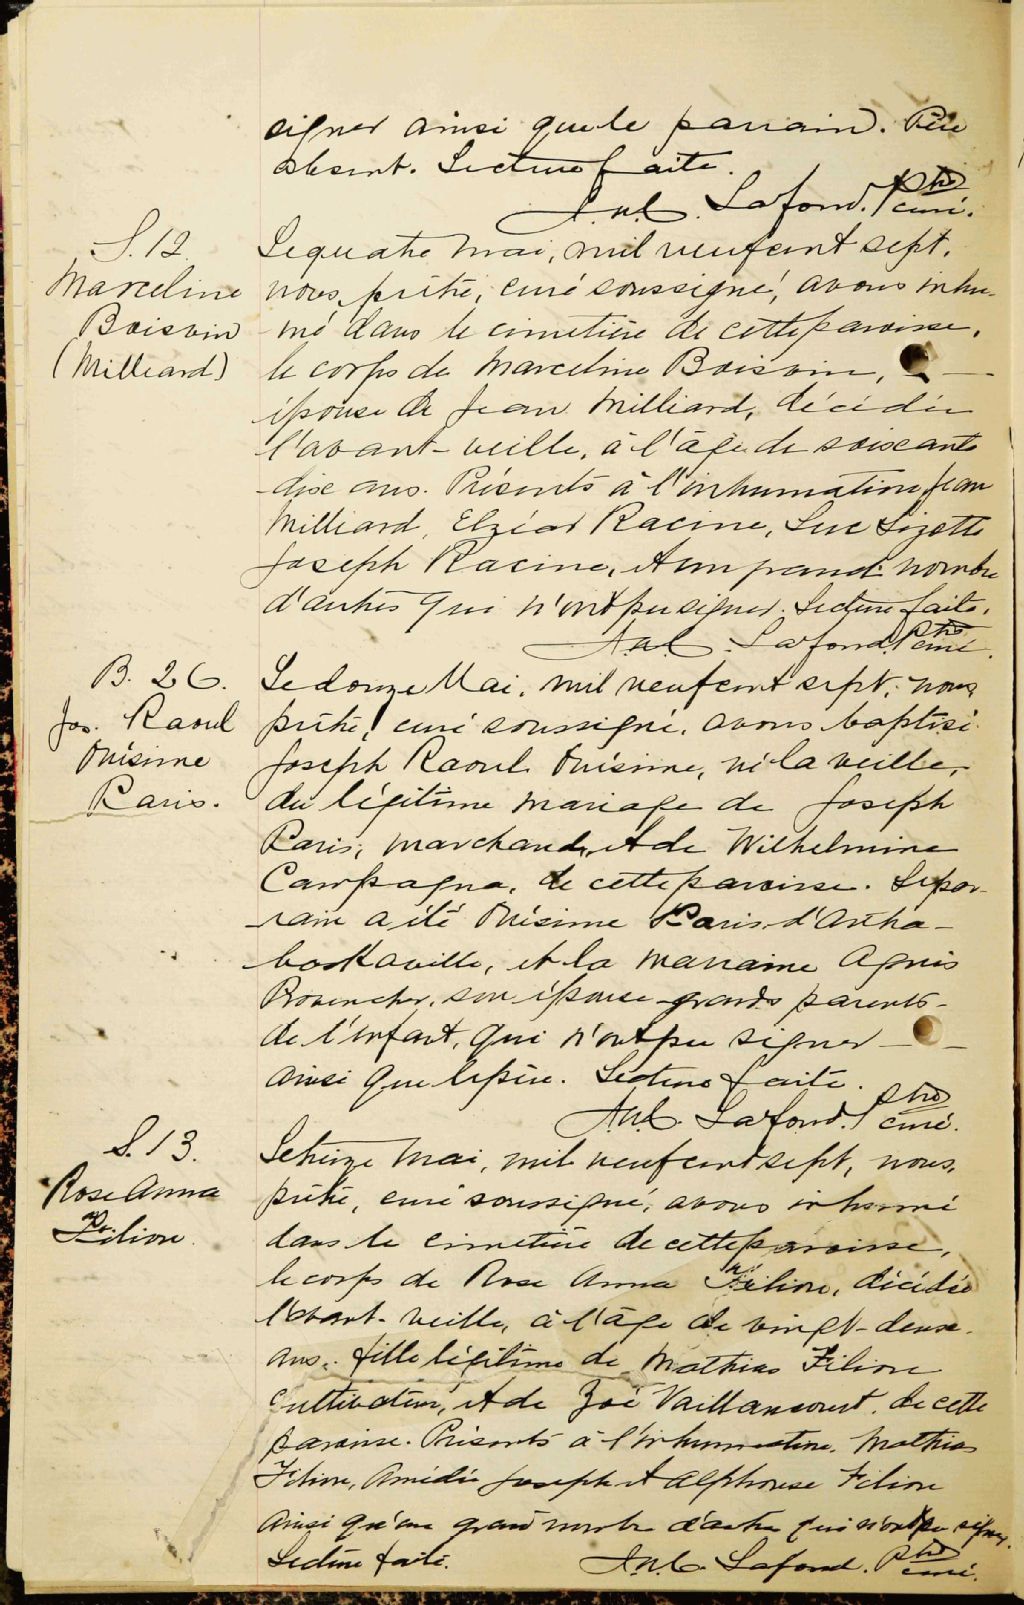 signer ainsi que le parrain. Père
absent. Lecture faite.
J. N. C. Lafond. Ptre curé.
S. 12.
Marceline
Boisvin
(Milliard)
Le quatre mai, mil neuf cent sept,
nous, prêtre, curé soussigné, avons inhu-
mé dans le cimetière de cette paroisse,
le corps de Marceline Boisvin, —
épouse de Jean Milliard, décédée
l'avant-veille, à l'âge de soixante
dix ans. Présents à l'inhumation Jean
Milliard, Elzéar Racine, Luc Lizotte
Joseph Racine, et un grand nombre
d'autres qui n'ont pu signer. Lecture faite.
J. N. C. Lafond. Ptre curé.
B. 26.
Jos. Raoul
Onésime
Paris.
Le douze Mai, mil neuf cent sept, nous,
prêtre, curé soussigné, avons baptisé
Joseph Raoul Onésime, né la veille,
du légitime mariage de Joseph
Paris, marchand, et de Wilhelmine
Campagna, de cette paroisse. Le par-
rain a été Onésime Paris d'Artha-
baskaville, et la marraine Agnès
Provencher, son épouse grands parents
de l'enfant, qui n'ont pu signer —
ainsi que le père. Lecture faite.
J. N. C. Lafond. Ptre curé.
S. 13.
Rose Anna
Filion
Le treize mai, mil neuf cent sept, nous,
prêtre, curé soussigné, avons inhumé
dans le cimetière de cette paroisse,
le corps de Rose Anna Filion, décédée
l'avant-veille, à l'âge de vingt-deux
ans, fille légitime de Mathias Filion
cultivateur, et de Zoé Vaillancourt, de cette
paroisse. Présents à l'inhumation, Mathias
Filion, Amédée Joseph et Alphonse Filion
ainsi qu'un grand nombre d'autres qui n'ont pu signer.
Lecture faite. J. N. C. Lafond. Ptre curé.